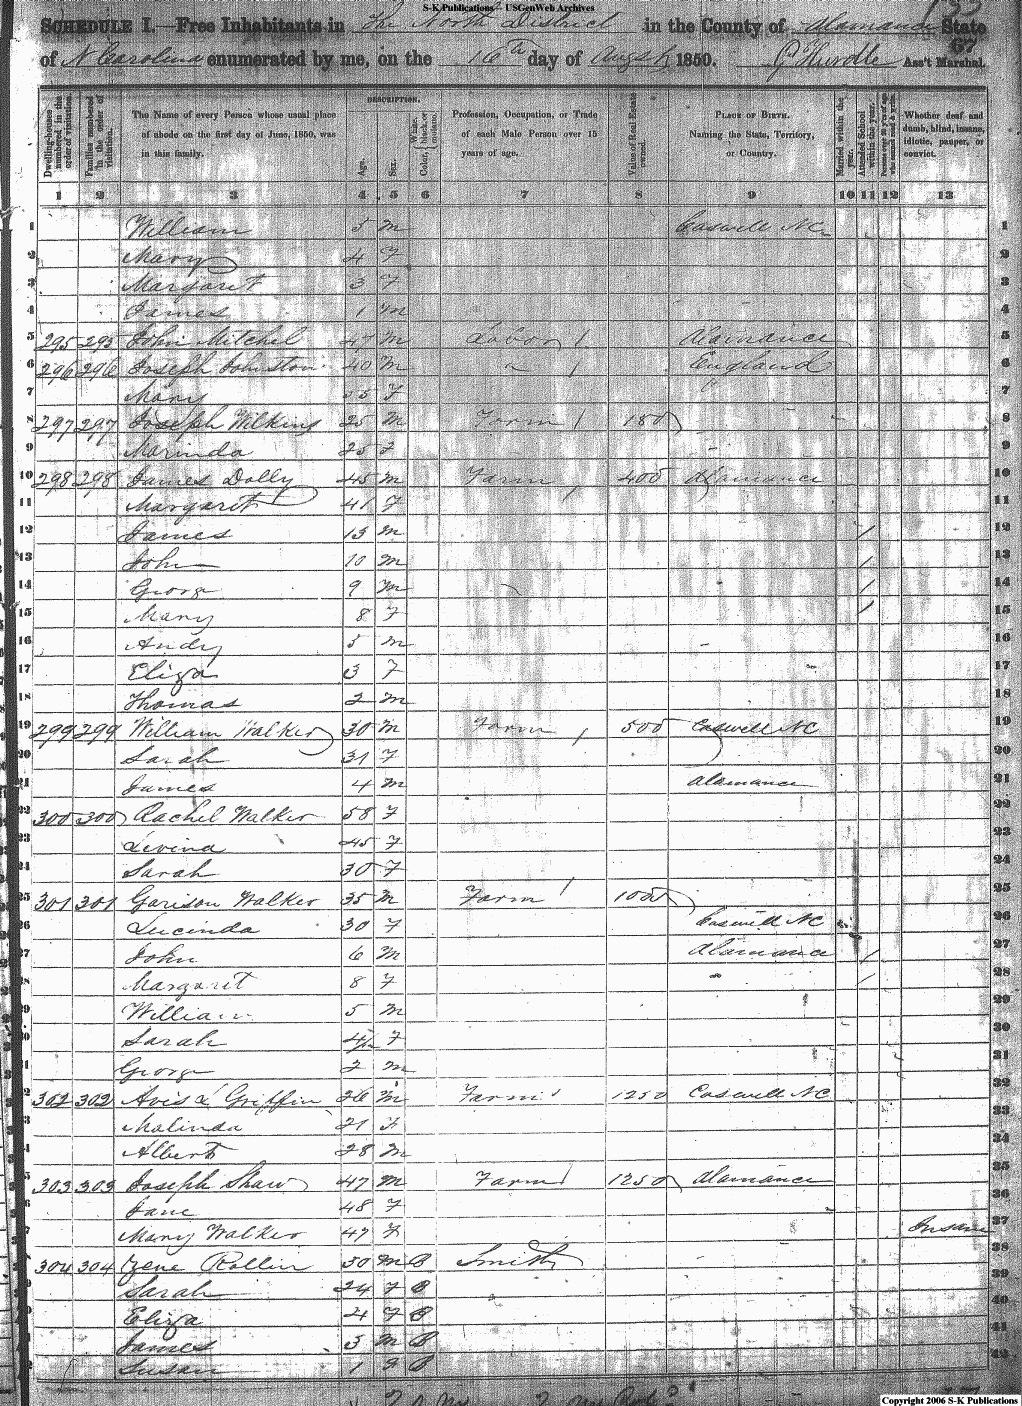 S-K Publications USGenWeb Archives
SCHEDULE I.—Free Inhabitants in The North District in the County of Alamance State
67
of N Carolina enumerated by me, on the 16th day of Augst 1850. G Hurdle Ass't Marshal.
Dwelling-houses numbered in the order of visitation.
Families numbered in the order of visitation.
The Name of every Person whose usual place of abode on the first day of June, 1850, was in this family.
DESCRIPTION.
Age.
Sex.
Color, White, black, or mulatto.
Profession, Occupation, or Trade of each Male Person over 15 years of age.
Value of Real Estate owned.
PLACE OF BIRTH. Naming the State, Territory, or Country.
Married within the year.
Attended School within the year.
Persons over 20 y'rs of age who cannot read & write.
Whether deaf and dumb, blind, insane, idiotic, pauper, or convict.
1 2 3 4 5 6 7 8 9 10 11 12 13
1 William 5 M Caswell NC 1
2 Mary 4 F 2
3 Margaret 3 F 3
4 James 1 M 4
5 295 295 John Mitchel 47 M Labor / Alamance 5
6 296 296 Joseph Johnston 40 M " / England 6
7 Mary 35 F " 7
8 297 297 Joseph Wilkins 25 M Farm / 180 8
9 Marinda 25 F " 9
10 298 298 James Dolly 45 M Farm / 400 Alamance 10
11 Margaret 41 F 11
12 James 13 M / 12
13 John 10 M / 13
14 George 9 M / 14
15 Mary 8 F / 15
16 Andy 5 M 16
17 Eliza 3 F 17
18 Thomas 2 M 18
19 299 299 William Walker 30 M Farm / 500 Caswell NC 19
20 Sarah 31 F 20
21 James 4 M Alamance 21
22 300 300 Rachel Walker 58 F 22
23 Levina 45 F 23
24 Sarah 30 F 24
25 301 301 Garison Walker 35 M Farm / 1000 25
26 Lucinda 30 F Caswell NC 26
27 John 6 M Alamance / 27
28 Margaret 8 F " / 28
29 William 5 M 29
30 Sarah F 30
31 George 2 M 31
32 302 302 Griffin 26 M Farm / 1250 Caswell NC 32
33 Malinda 21 F 33
34 Albert 28 M 34
35 303 303 Joseph Shaw 47 M Farm / 1250 Alamance 35
36 Jane 48 F 36
37 Mary Walker 47 F Insane 37
38 304 304 Rollin 50 M B Smith 38
39 Sarah 24 F B 39
40 Eliza 4 F B 40
41 James 3 M B 41
42 Susan 1 F B 42
Copyright 2006 S-K Publications